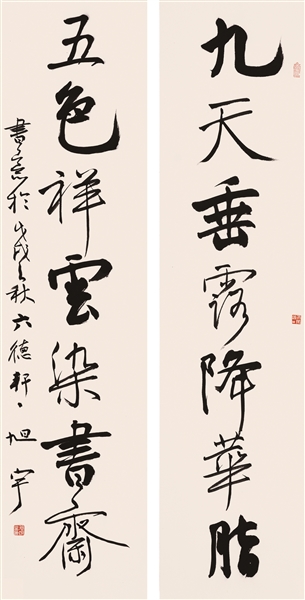 九天垂露降華脂
五色祥雲染書齋
書意於戊戌之秋六德軒旭宇